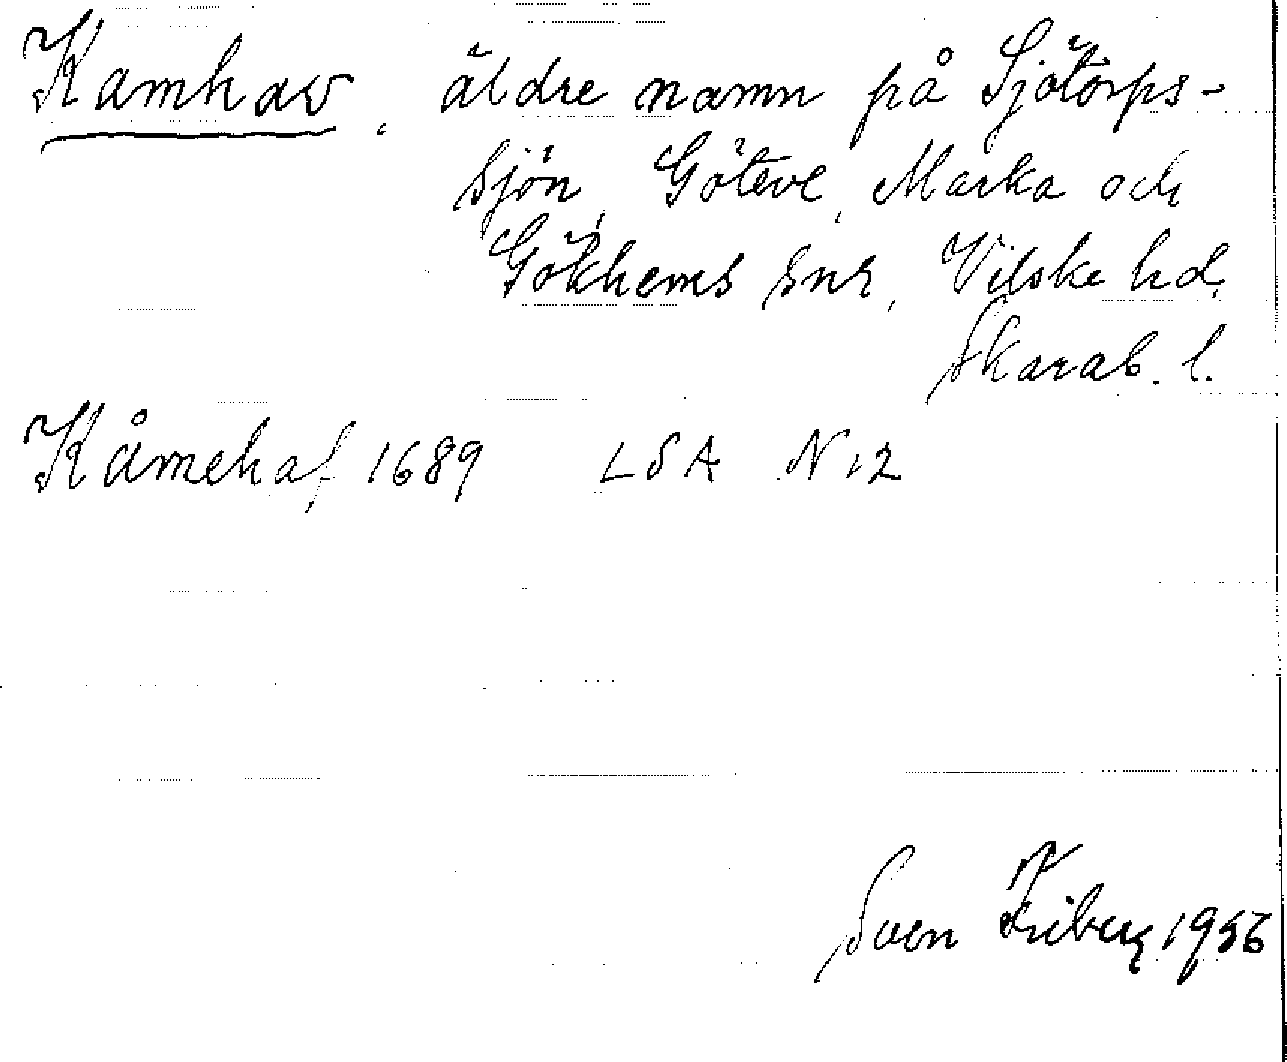 Kamhav, äldre namn på Sjötorps-
sjön, Göteve, Marka och
Gökhems snr, Vilske hd.
Skarab. l.
Kåmehaf 1689 LSA N 12
Sven Friberg 1956